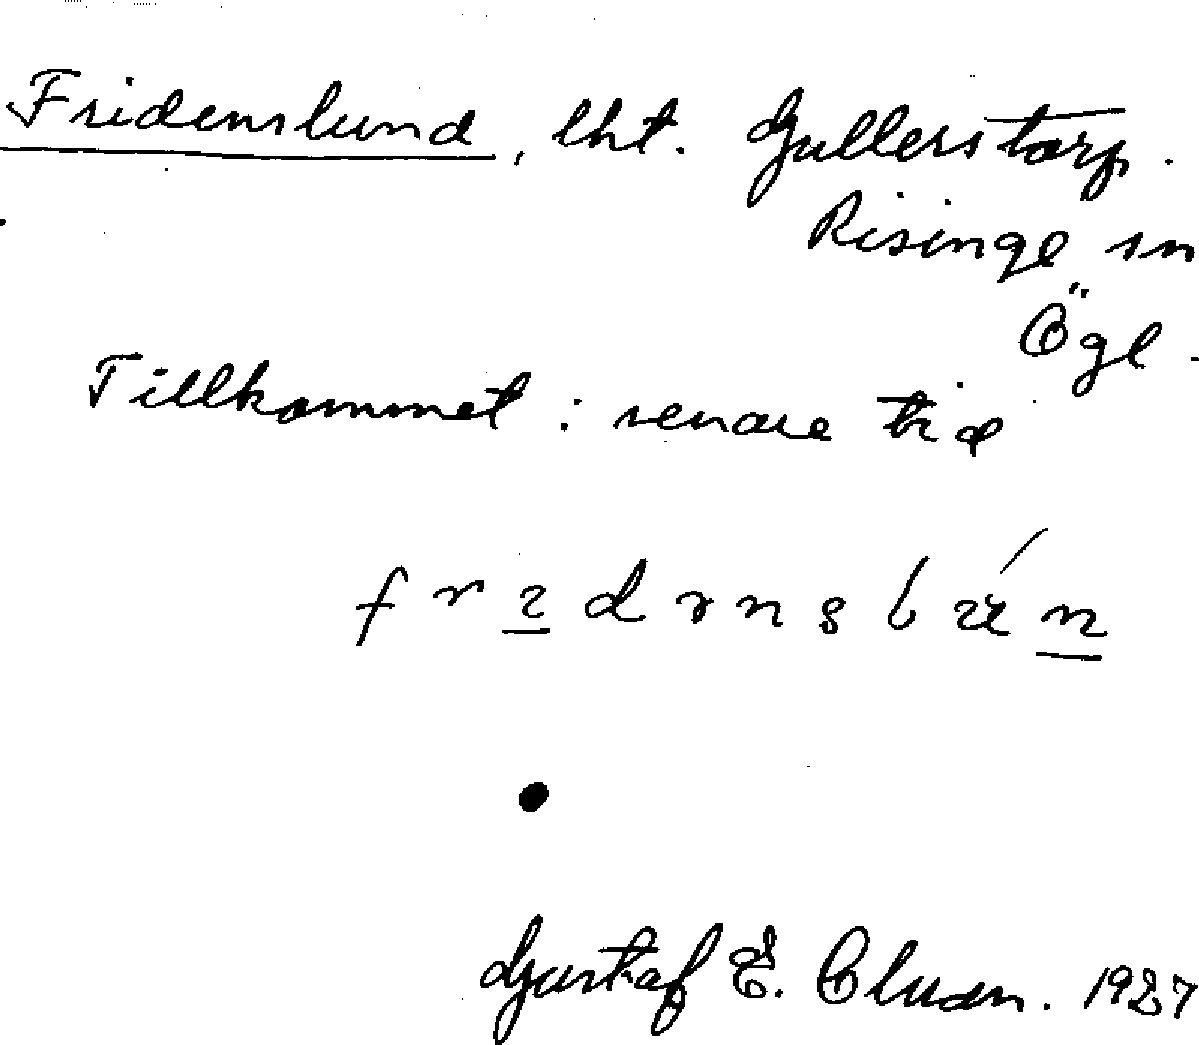 Fridenslund, lht. Gullerstorp.
Risinge sn
Ögl.
Tillkommet: senare tid
Gustaf E. 1927